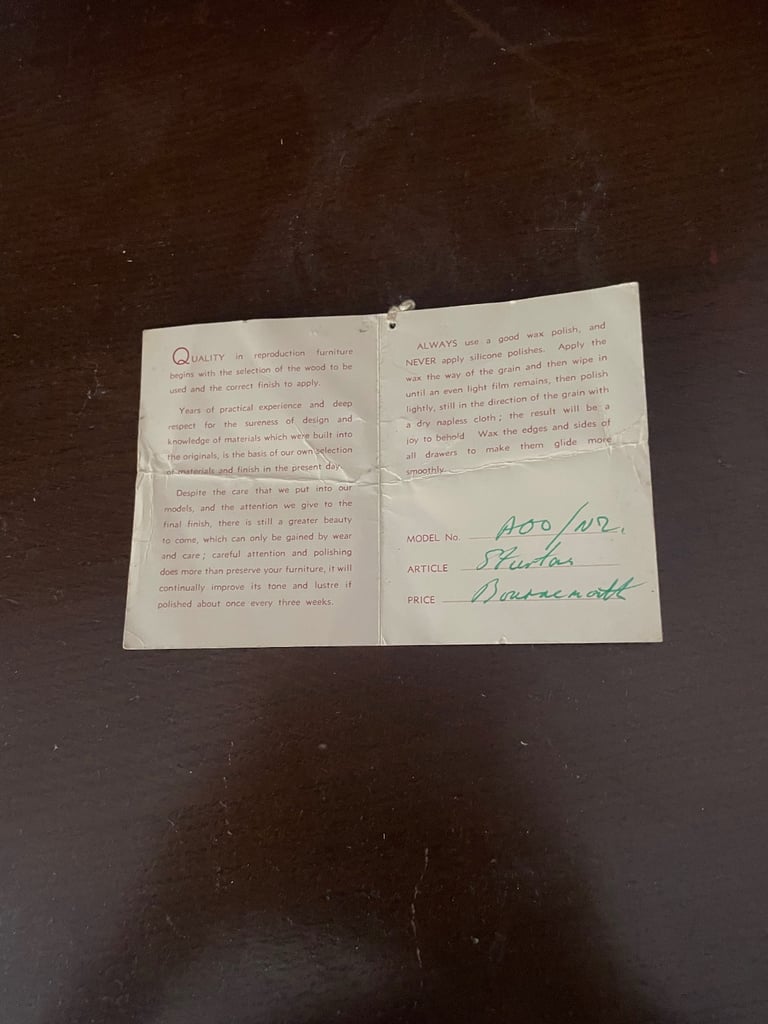 QUALITY in reproduction furniture
begins with the selection of the wood to be
used and the correct finish to apply.
Years of practical experience and deep
respect for the sureness of design and
knowledge of materials which were built into
the originals, is the basis of our own selection
of materials and finish in the present day.
Despite the care that we put into our
models, and the attention we give to the
final finish, there is still a greater beauty
to come, which can only be gained by wear
and care; careful attention and polishing
does more than preserve your furniture, it will
continually improve its tone and lustre if
polished about once every three weeks.
ALWAYS use a good wax polish, and
NEVER apply silicone polishes. Apply the
wax the way of the grain and then wipe in
until an even light film remains, then polish
lightly, still in the direction of the grain with
a dry napless cloth; the result will be a
joy to behold Wax the edges and sides of
all drawers to make them glide more
smoothly.
MODEL No.
ARTICLE
PRICE Bournemouth